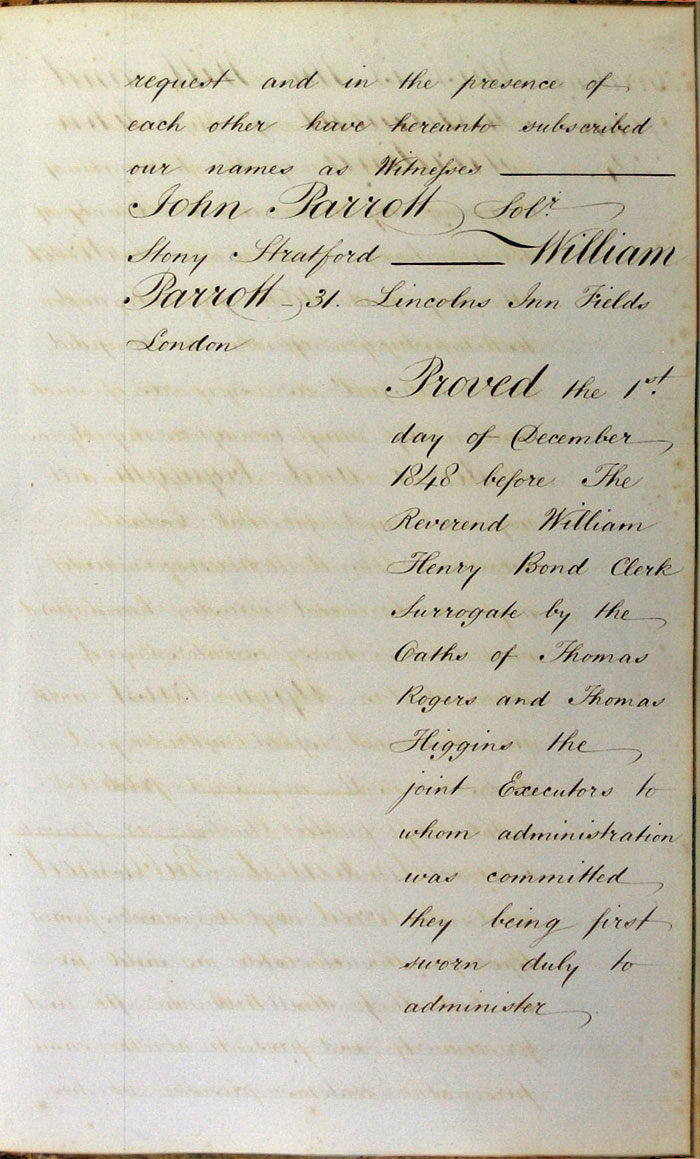 request and in the presence of
each other have hereunto subscribed
our names as Witnesses
John Parrott Solr.
Stony Stratford William
Parrott - 31. Lincolns Inn Fields
London
Proved the 1st.
day of December
1848 before The
Reverend William
Henry Bond Clerk
Surrogate by the
Oaths of Thomas
Rogers and Thomas
Higgins the
joint Executors to
whom administration
was committed
they being first
sworn duly to
administer